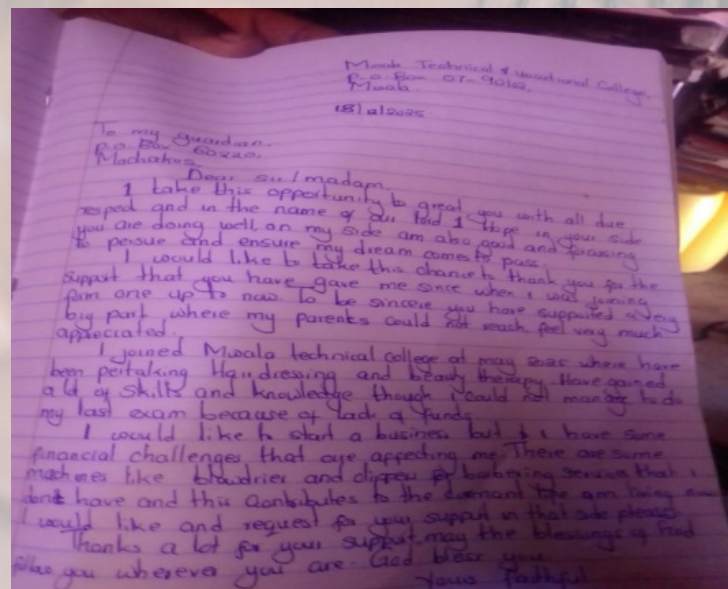 Mwala Technical & Vocational College,
P.O. Box 07-90102,
Mwala
18/9/2025
To my guardian,
P.O. Box 60220,
Machakos.
Dear sir/madam.
I take this opportunity to great you with all due
respect and in the name of our lord I hope in your side
you are doing well on my side am also good and focusing
to persue and ensure my dream comes to pass.
I would like to take this chance to thank you for the
support that you have gave me since when i was joining
form one up to now. To be sincere you have supported a very
big part where my parents could not reach, feel very much
appreciated.
I joined Mwala technical college at may 2025 where have
been pertaking Hairdressing and beauty therapy. Have gained
a lot of skills and knowledge though i could not manage to do
my last exam because of lack of funds
I would like to start a business but i have some
financial challenges that are affecting me. There are some
machines like blowdrier and clipper for barbering services that i
dont have and this contributes to the dormant life am living now
I would like and request for your support in that side please.
Thanks a lot for your support, may the blessings of God
follow you wherever you are. God bless you
Yours faithful